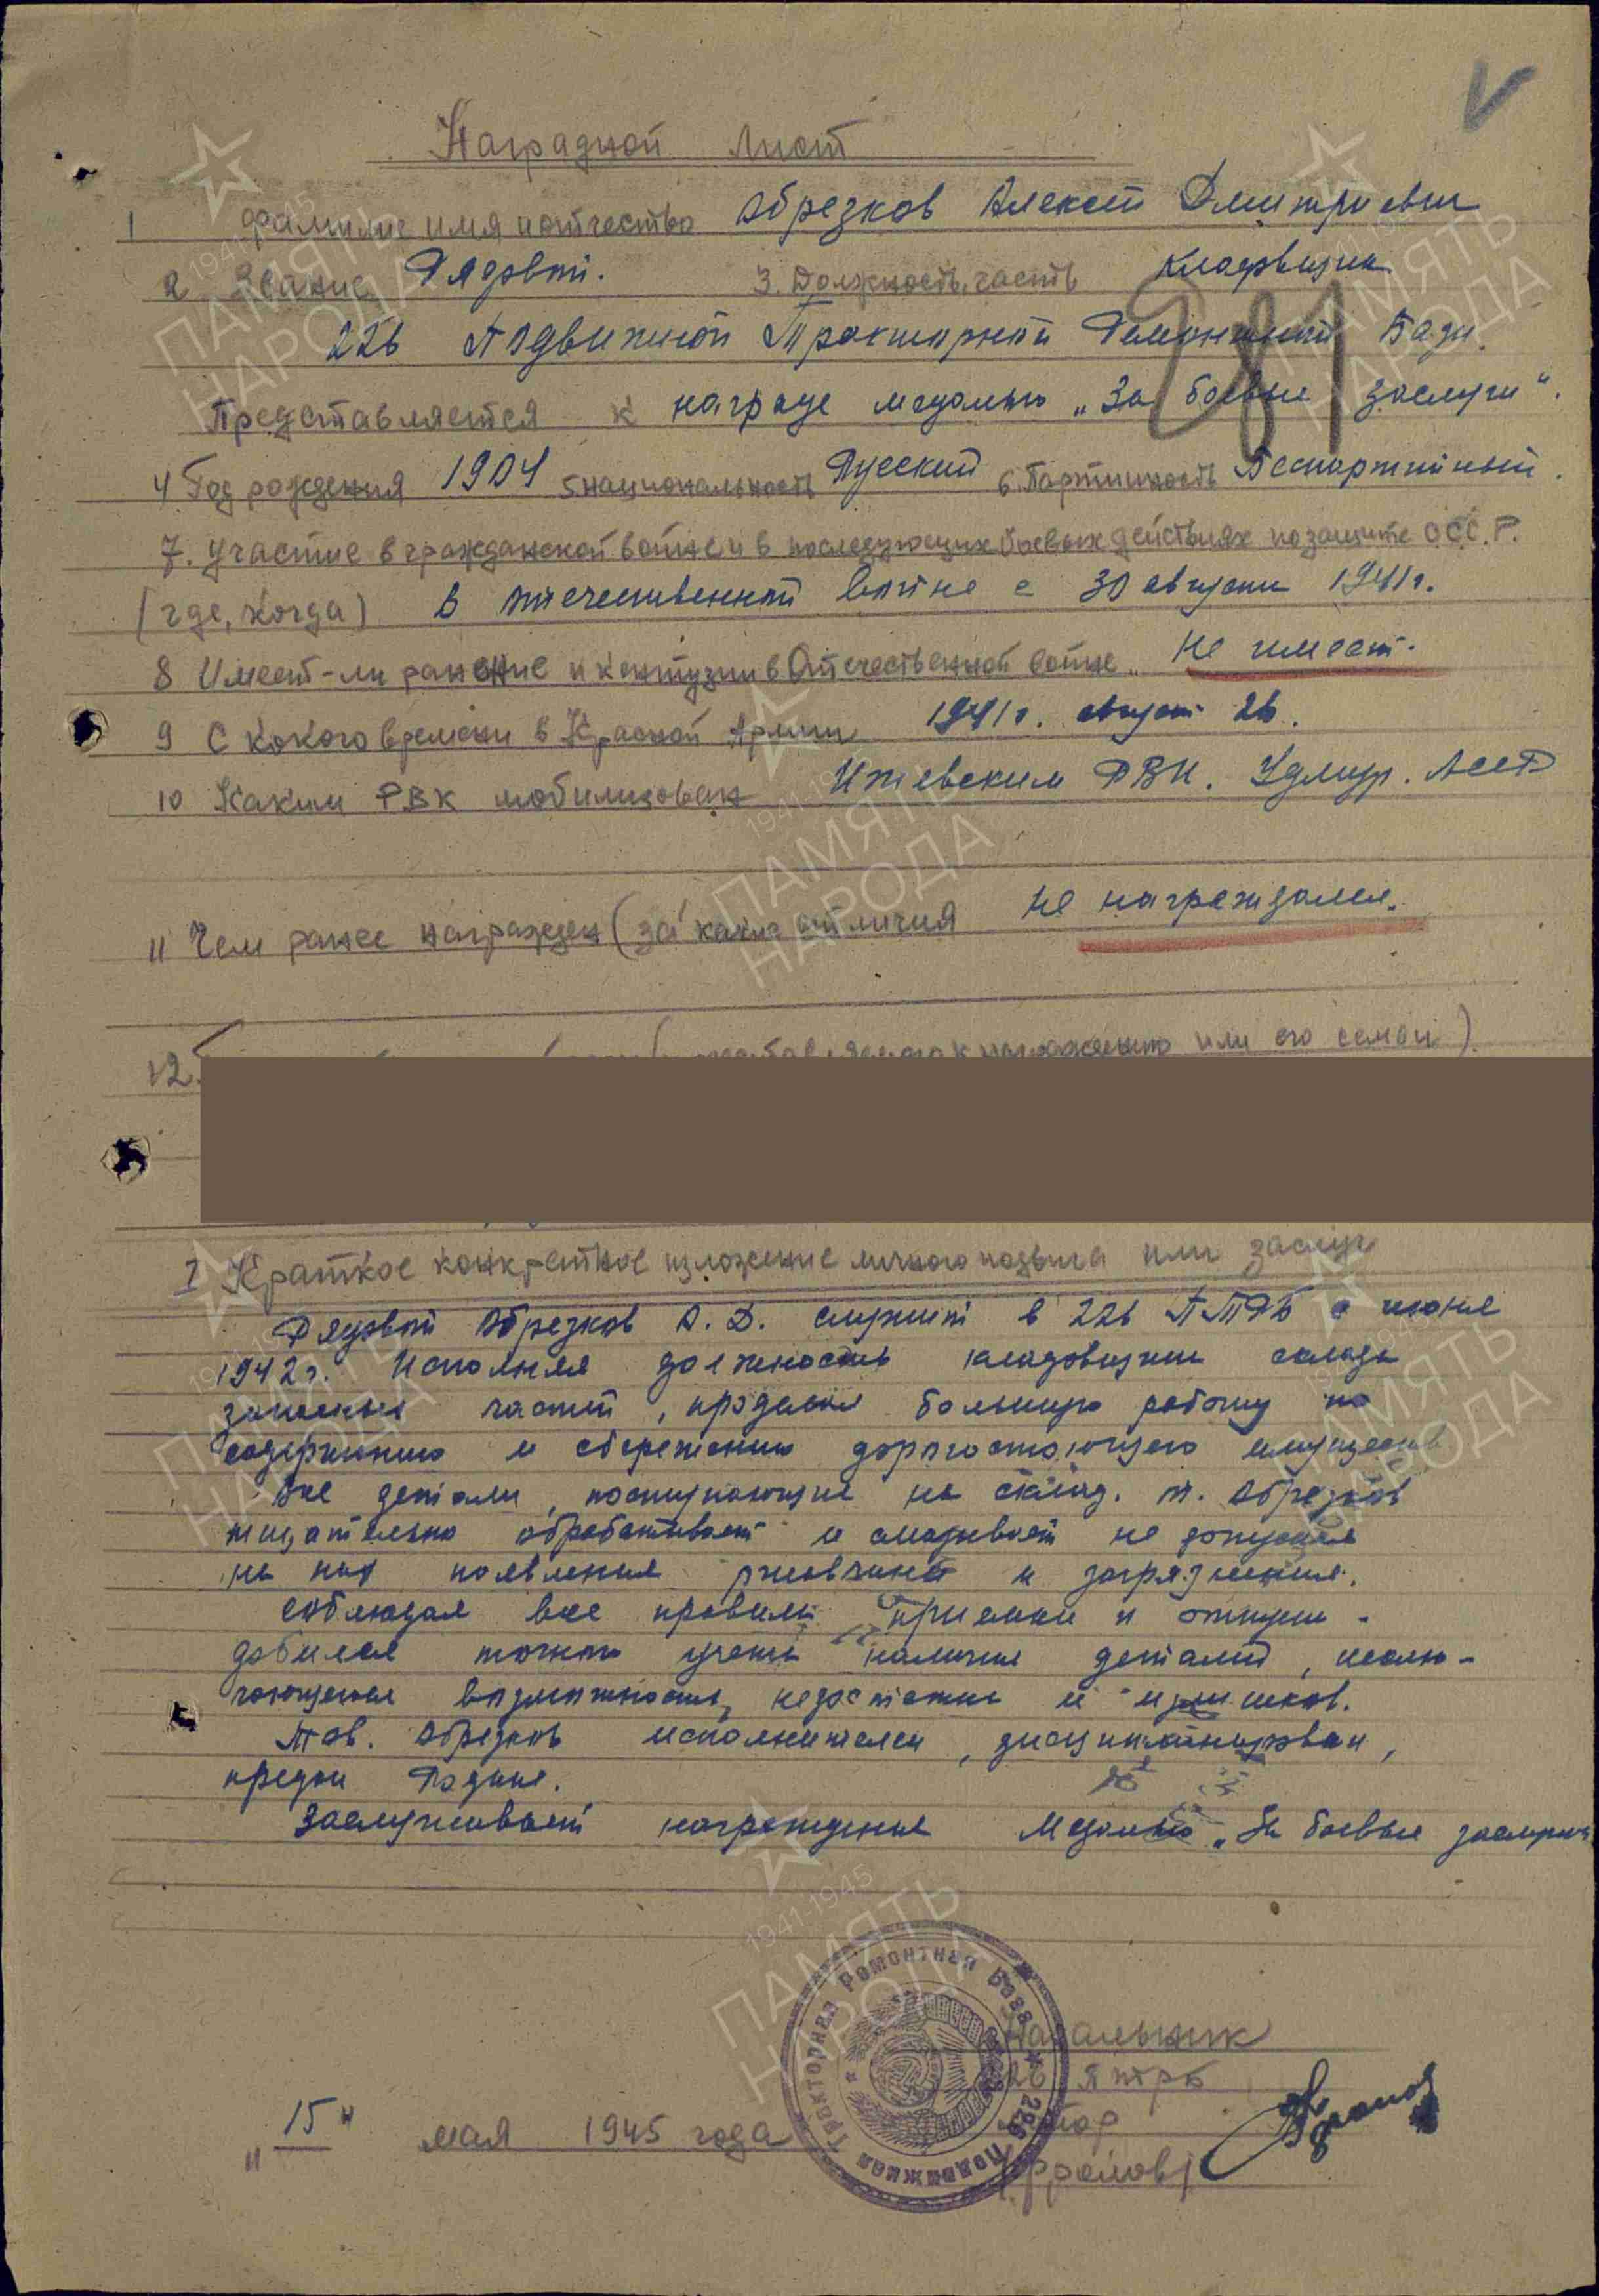 Наградной лист
1 Фамилие имя и отчество Обрезков Алексей Дмитриевич
2 Звание Рядовой. 3. Должность, часть Кладовщик
226 Подвижной Тракторной Ремонтной Базы.
281
Представляется к награде медалью „За боевые заслуги“.
4 Год рождения 1904 5 национальность Русский 6. Партийность Беспартийный.
7. Участие в гражданской войне и в последующих боевых действиях по защите СССР.
(где, когда) В отечественной войне с 30 августа 1941 г.
8 Имеет-ли ранение и контузии в Отечественной войне Не имеет.
9 С какого времени в Красной Армии 1941 г. август 26.
10 Каким РВК мобилизован Ижевским РВК. Удмур. АССР
11 Чем ранее награжден (за какие отличия Не награждался.
12. к награждению или его семьи).
I Краткое конкретное изложение личного подвига или заслуг
Рядовой Обрезков А. Д. служит в 226 ПТРБ с июня
1942 г. Исполняя должность кладовщика склада
запасных частей, проделал большую работу по
содержанию и сбережению дорогостоющего имущества
Все детали, поступающие на склад. т. Обрезков
тщательно обрабатывает и смазывает не допуская
на них появления ржавчины и загрязнения.
Соблюдая все правила приемки и отпуска -
добился точного учета наличия деталей, исклю-
чающегося возможность недостатки и излишков.
Тов. Обрезков исполнителен, дисциплинирован,
предан Родине.
Заслуживает награждения Медалью „За боевые заслуги
Начальник
226 ПТРБ
майор
(Фролов)
„15“ мая 1945 года
226 Подвижная Тракторная Ремонтная База
1941-1945
ПАМЯТЬ
НАРОДА